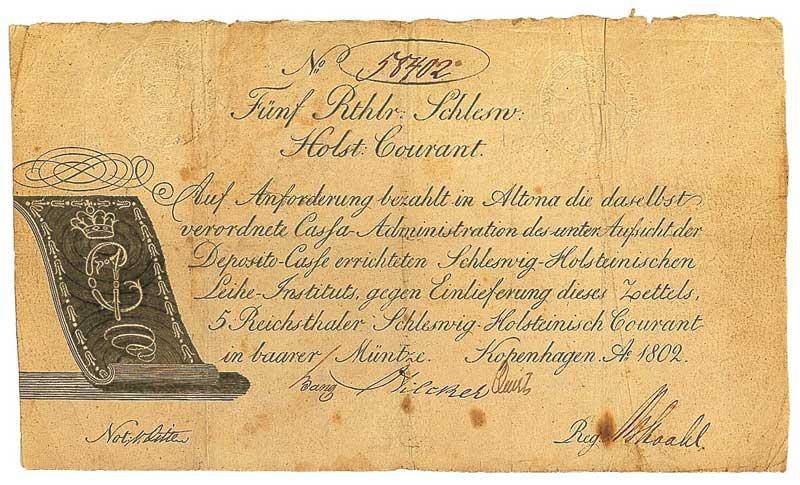 No. 58402
Fünf Rthlr: Schlesw:
Holst: Courant.
Auf Anforderung bezahlt in Altona die daselbst
verordnete Cassa-Administration des unter Aufsicht der
Deposito-Casse errichteten Schleswig-Holsteinischen
Leihe-Instituts, gegen Einlieferung dieses Zettels,
5 Reichsthaler Schleswig-Holsteinisch Courant
in baarer Müntze. Kopenhagen. Ao 1802.
Not.
Reg.